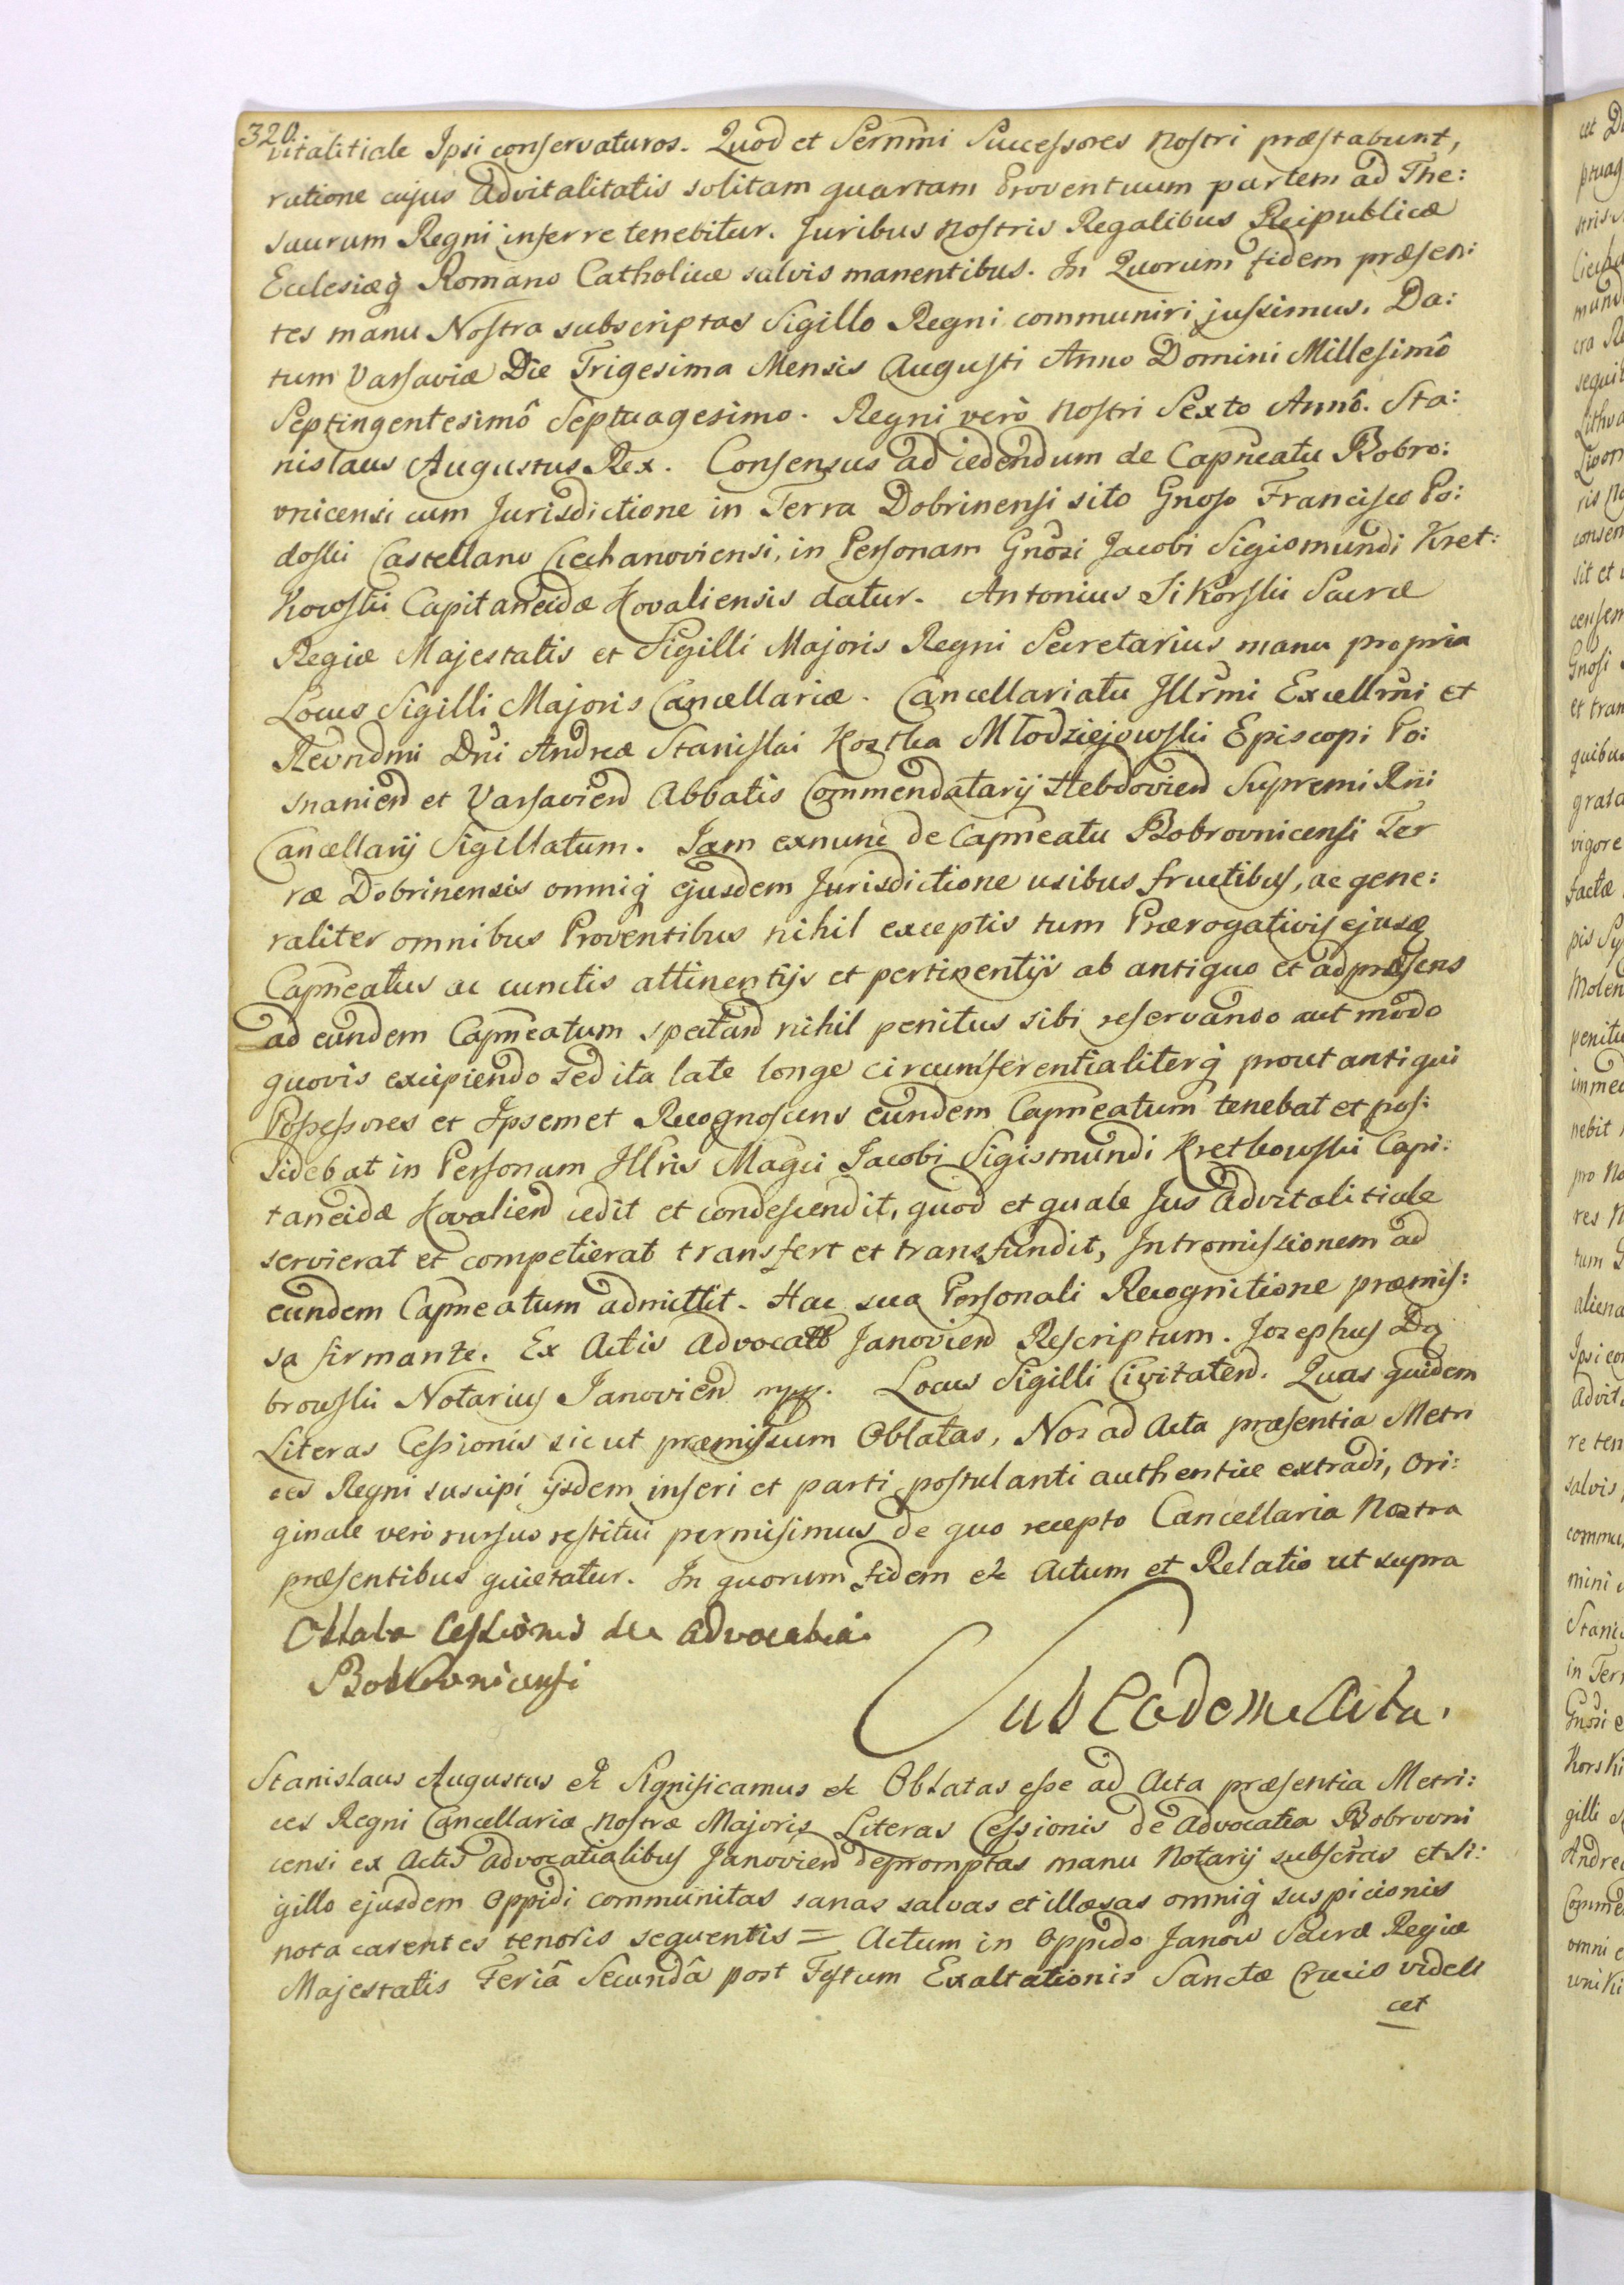 320.
vitalitiale Ipsi conservaturos. Quod et Sernmi Successores Nostri præstabunt,
ratione cujus Advitalitatis solitam quartam Proventuum partem ad The:
saurum Regni inferre tenebitur. Juribus Nostris Regalibus Reipublicæ
Ecclesiæq̃ Romano Catholicæ salvis manentibus. In Quorum fidem præsen:
tes manu Nostra subscriptas Sigillo Regni communiri jussimus. Da:
tum Varsaviæ Die Trigesima Mensis Augusti Anno Domini Millesimô
Septingentesimô Septuagesimo. Regni verò Nostri Sexto Annô. Sta:
nislaus Augustus Rex. Consensus ad cedendum de Capñeatu Bobro:
vnicensi cum Jurisdictione in Terra Dobrinensi sito Gnoso Francisco Po:
doski Castellano Ciechanoviensi, in Personam Gnosi Jacobi Sigismundi Kret:
kowski Capitaneidæ Kovaliensis datur. Antonius Sikorski Sacræ
Regiæ Majestatis et Sigilli Majoris Regni Secretarius manu propria
Locus Sigilli Majoris Cancellariæ. Cancellariatu Illrmi Excellmi et
Revndmi Dni Andreæ Stanislai Kostka Młodziejowski Episcopi Po:
snanien et Varsavien Abbatis Commendatarij Hebdovien Supremi Rni
Cancellarij Sigillatum. Jam exnunc de Capñeatu Bobrovnicensi Ter
ræ Dobrinensis omniq̃ ejusdem Jurisdictione usibus fructibus, ac gene:
raliter omnibus Proventibus nihil exceptis tum Prærogativis ejusq
Capñeatus ac cunctis attinentijs et pertinentijs ab antiquo et ad præsens
ad eundem Capñeatum spectan nihil penitus sibi reservando aut modo
quovis excipiendo sed ita late longe circumferentialiterq̃ prout antiqui
Possessores et Ipsemet Recognoscens eundem Capñeatum tenebat et pos:
sidebat in Personam Illris Magci Jacobi Sigismundi Kretkowski Capi:
taneidæ Kovalien cedit et condescendit, quod et quale Jus Advitalitiale
servierat et competierat transfert et transfundit, Intromissionem ad
eundem Capñeatum admittit. Hac sua Personali Recognitione præmis:
sa firmante. Ex Actis Advocatt Janovien Rescriptum. Josephus Dą
browski Notarius Janovien mpp. Locus Sigilli Civitaten. Quas quidem
Literas Cessionis sicut præmissum Oblatas, Nos ad Acta præsentia Metri
ces Regni suscipi ijsdem inseri et parti postulanti authentice extradi, Ori:
ginale verò rursus restitui permisimus de quo recepto Cancellaria Nostra
præsentibus quietatur. In quorum fidem &c Actum et Relatio ut supra
Oblata Cessionis de Advocatia
Bobrovnicensi
Sub Eadem Acta.
Stanislaus Augustus &c Significamus &c Oblatas esse ad Acta præsentia Metri:
ces Regni Cancellariæ Nostræ Majoris Literas Cessionis de Advocatia Bobrovni
censi ex Actis Advocatialibus Janovien depromptas manu Notarij subscras et Si:
gillo ejusdem Oppidi communitas sanas salvas et illæsas omniq̃ suspicionis
nota carentes tenoris sequentis = Actum in Oppido Janow Sacræ Regiæ
Majestatis Feriâ Secundâ post Festum Exaltationis Sanctæ Crucis videli
cet